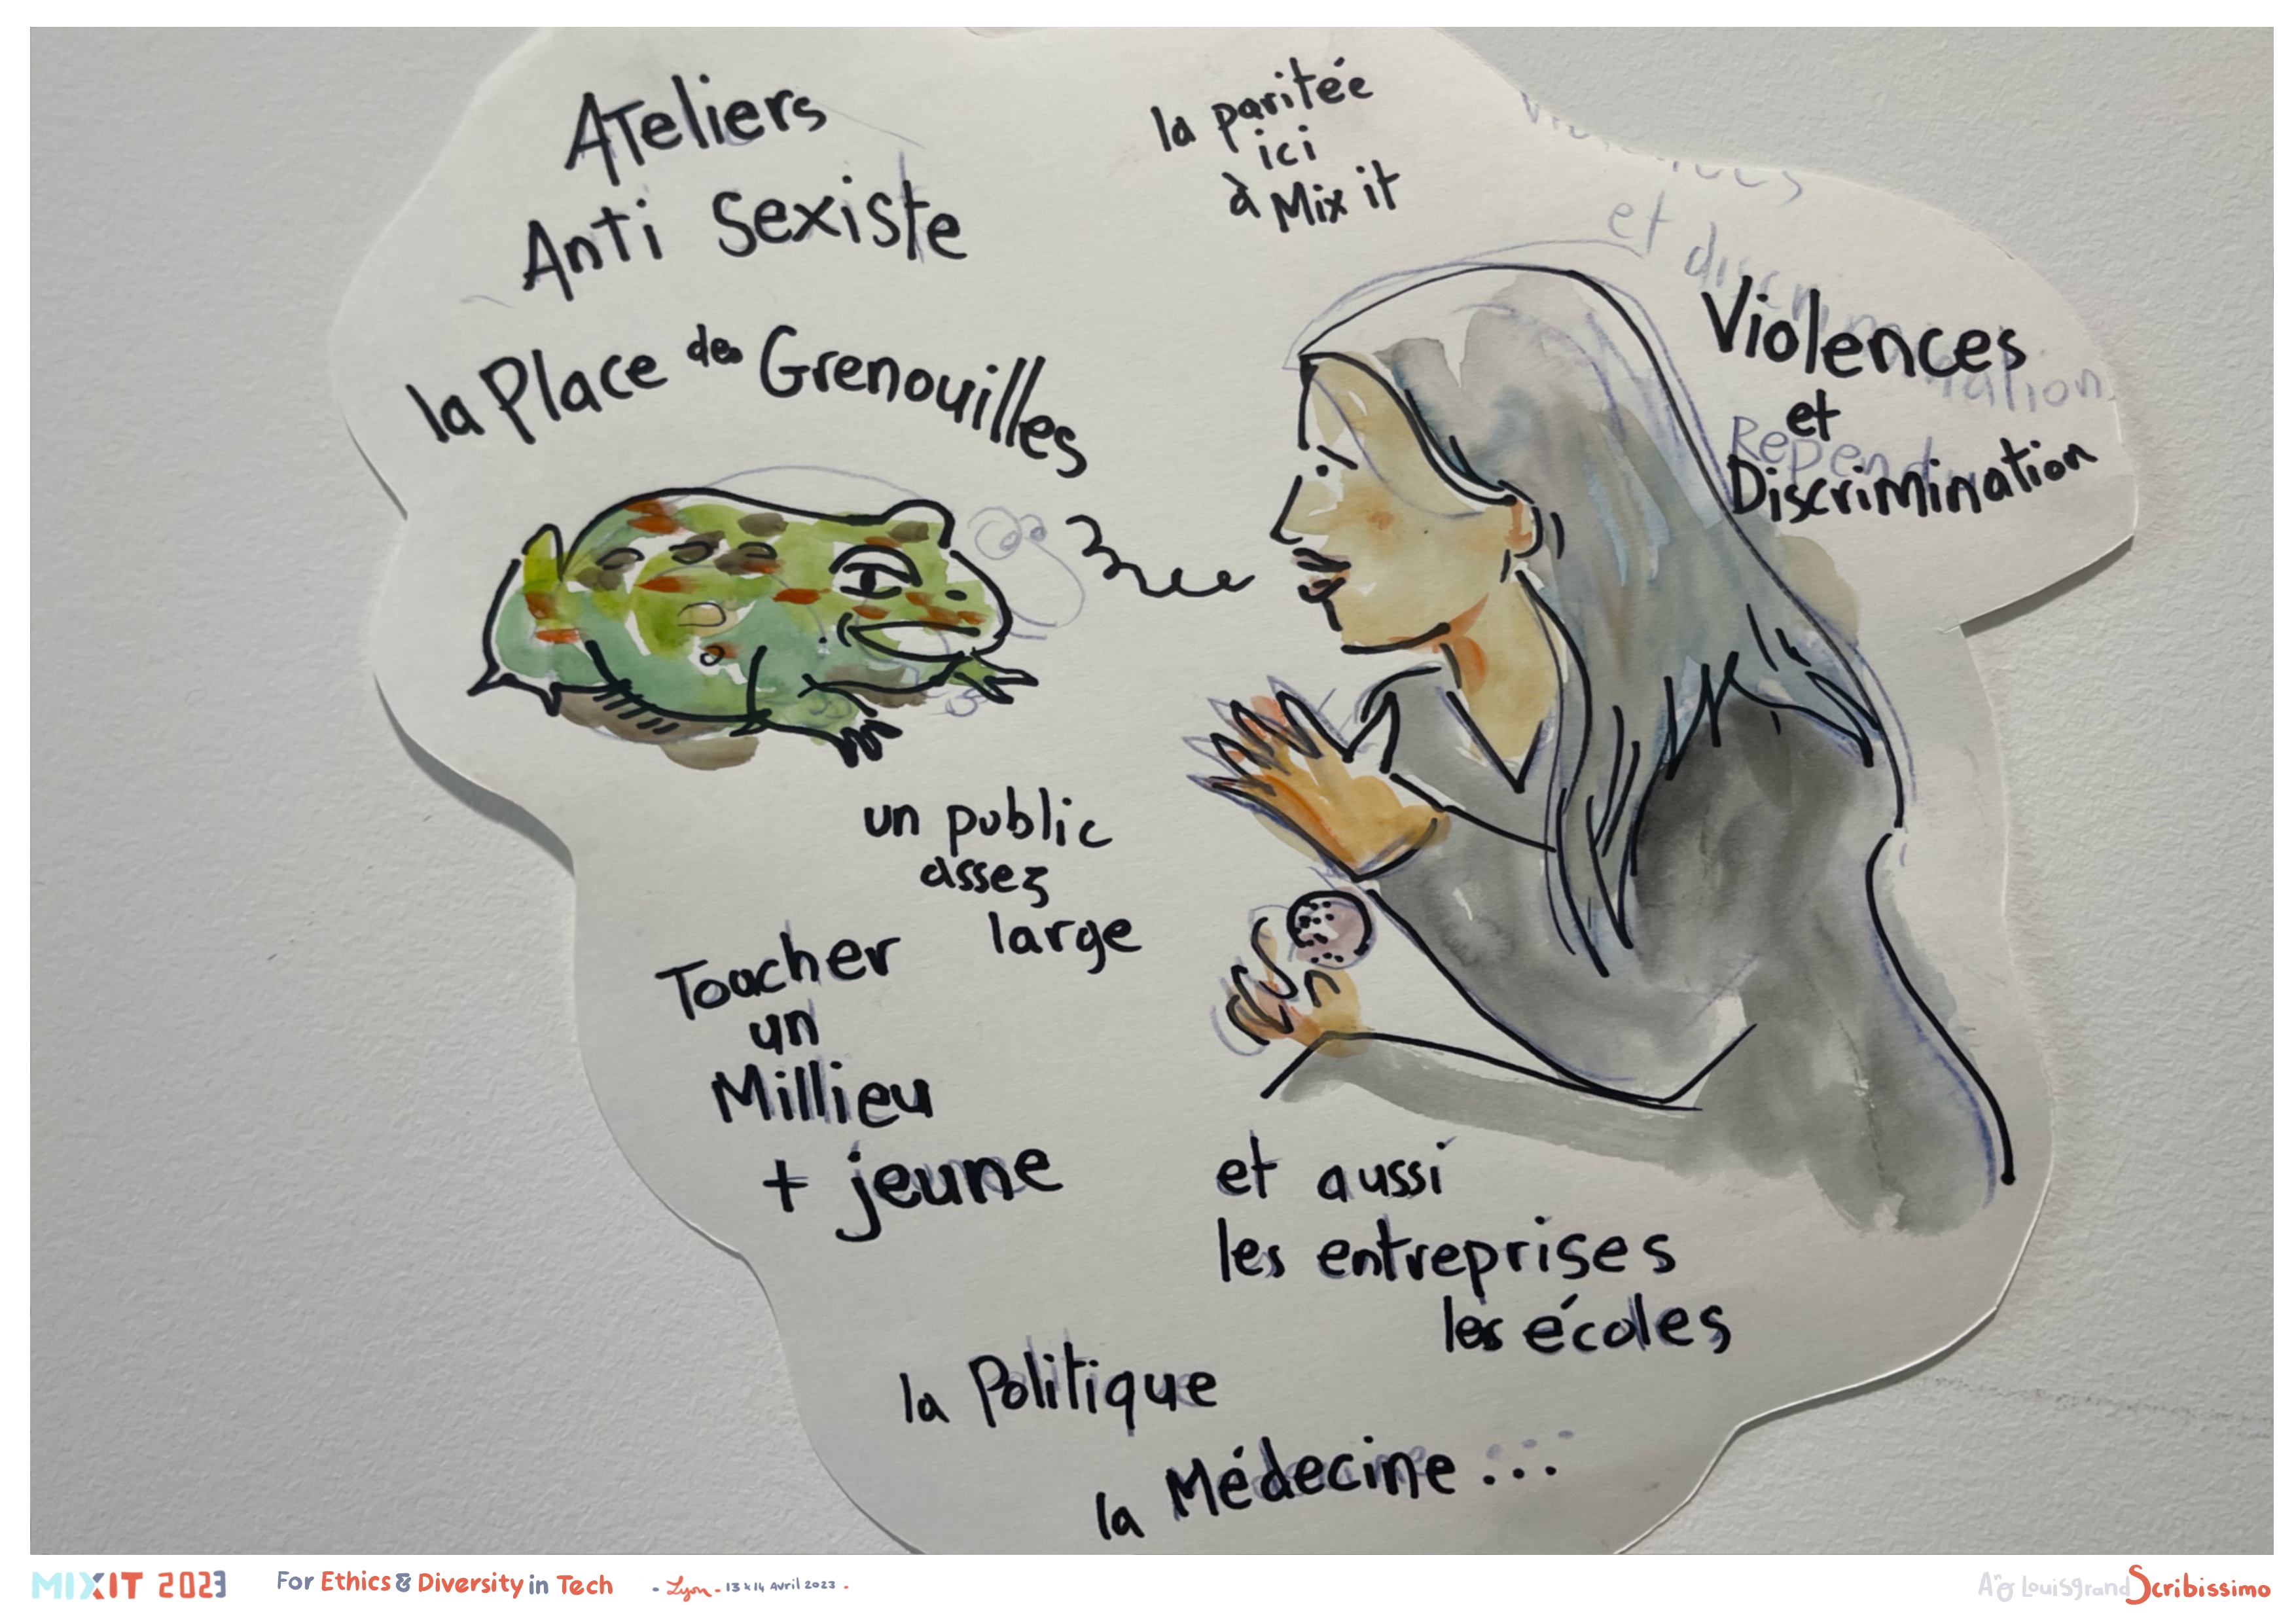 Ateliers
Anti Sexiste
la Place des Grenouilles
la paritée
ici
à Mix it
et discrimination
Violences
et
Discrimination
un public
assez
large
Toucher
un
Millieu
+ jeune
et aussi
les entreprises
les écoles
la Politique
la Médecine ...
MIXIT 2023
For Ethics & Diversity in Tech
- Lyon - 13 & 14 Avril 2023 -
Louisgrand Scribissimo